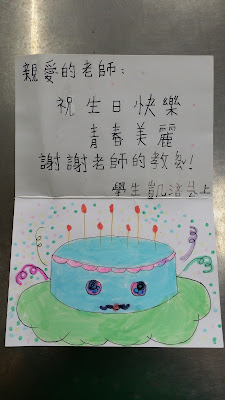 親愛的老師：
祝生日快樂
青春美麗
謝謝老師的教
學生 凱
上